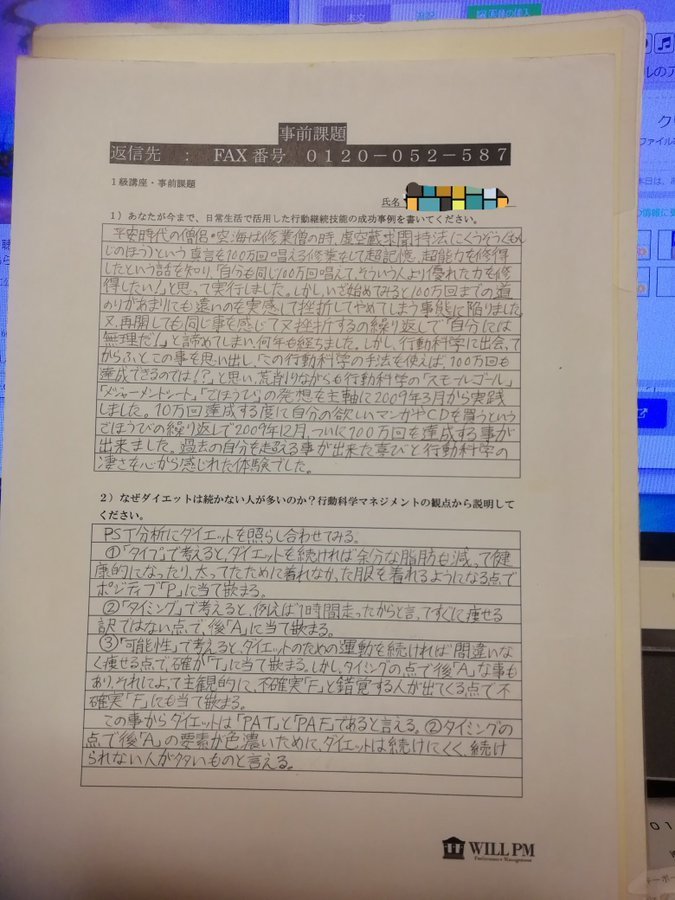 本文
画像の挿入
事前課題
返信先 : FAX番号 0120-052-587
1級講座・事前課題
氏名
1）あなたが今まで、日常生活で活用した行動継続技能の成功事例を書いてください。
平安時代の僧侶・空海は修業僧の時、虚空蔵求聞持法(こくうぞうぐもん
じのほう)という真言を100万回唱える修業をして超記憶、超能力を修得
したという話を知り、「自分も同じ100万回唱えて、そういう人より優れた力を修
得したい!」と思って実行しました。しかし、いざ始めてみると100万回までの道
のりがあまりにも遠いのを実感して挫折してやめてしまう事態に陥りました。
又、再開しても同じ事を感じて又挫折するの繰り返しで「自分には
無理だ!」と諦めてしまい、何年も経ちました。しかし、行動科学に出会っ
てからふとこの事を思い出し、「この行動科学の手法を使えば、100万回も
達成できるのでは!?」と思い、荒削りながらも行動科学の「スモールゴール」
「メジャーメントシート」、「ごほうび」の発想を主軸に2009年3月から実践
しました。10万回達成する度に自分の欲しいマンガやCDを買うという
ごほうびの繰り返しで2009年12月、ついに100万回を達成する事が
出来ました。過去の自分を超える事が出来た喜びと行動科学の
凄さを心から感じれた体験でした。
2）なぜダイエットは続かない人が多いのか？行動科学マネジメントの観点から説明して
ください。
PST分析にダイエットを照らし合わせてみる。
①「タイプ」で考えると、ダイエットを続ければ余分な脂肪も減って健
康的になったり、太ってたために着れなかった服を着れるようになる点で
ポジティブ「P」に当て嵌まる。
②「タイミング」で考えると、例えば1時間走ったからと言ってすぐに痩せる
訳ではない点で、後「A」に当て嵌まる。
③「可能性」で考えると、ダイエットのための運動を続ければ間違いな
く痩せる点で、確か「T」に当て嵌まる。しかし、タイミングの点で後「A」な事も
あり、それによって主観的に、不確実「F」と錯覚する人が出てくる点で不
確実「F」にも当て嵌まる。
この事からダイエットは「PAT」と「PAF」であると言える。②タイミングの
点で後「A」の要素が色濃いために、ダイエットは続けにくく、続け
られない人が多いものと言える。
WILL PM
Performance Management